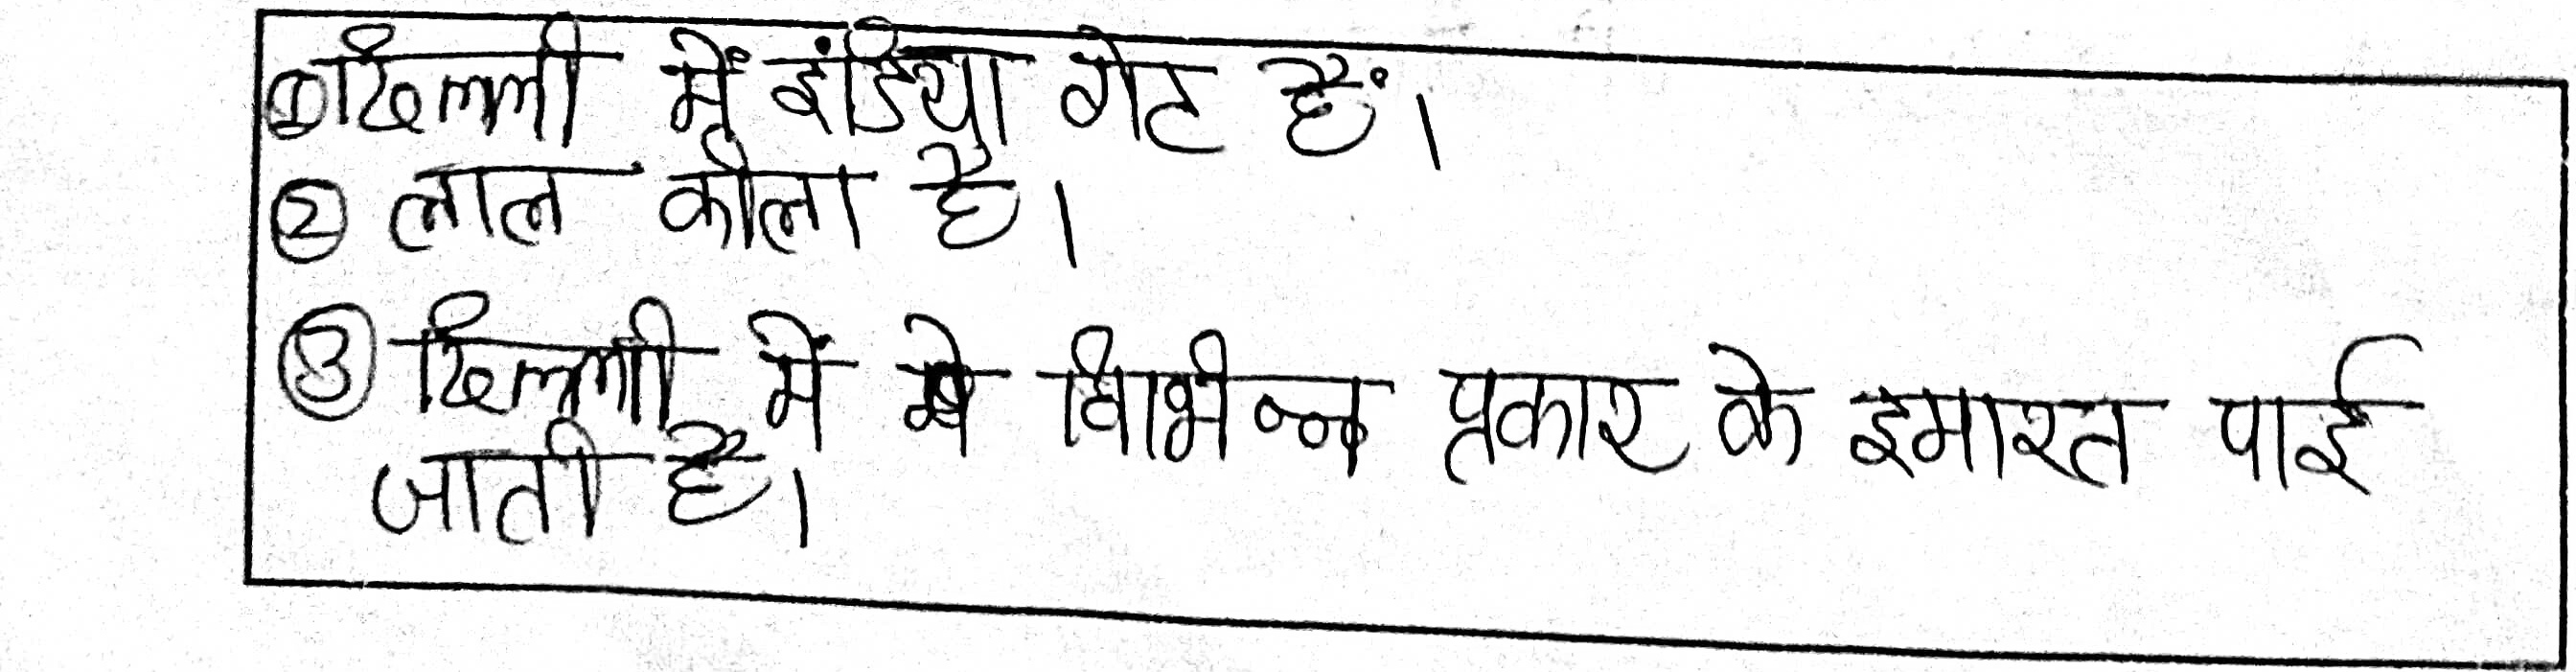 ① दिल्ली में इंडिया गेट हैं।
② लाल कीला है।
③ दिल्ली में विभिन्न प्रकार के इमारत पाई
जाती है।